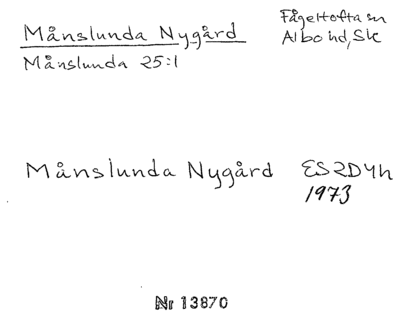 Månslunda Nygård
Fågeltofta sn
Albo hd, Sk
Månslunda 25:1
Månslunda Nygård
ES2D4h
1973
Nr 13870